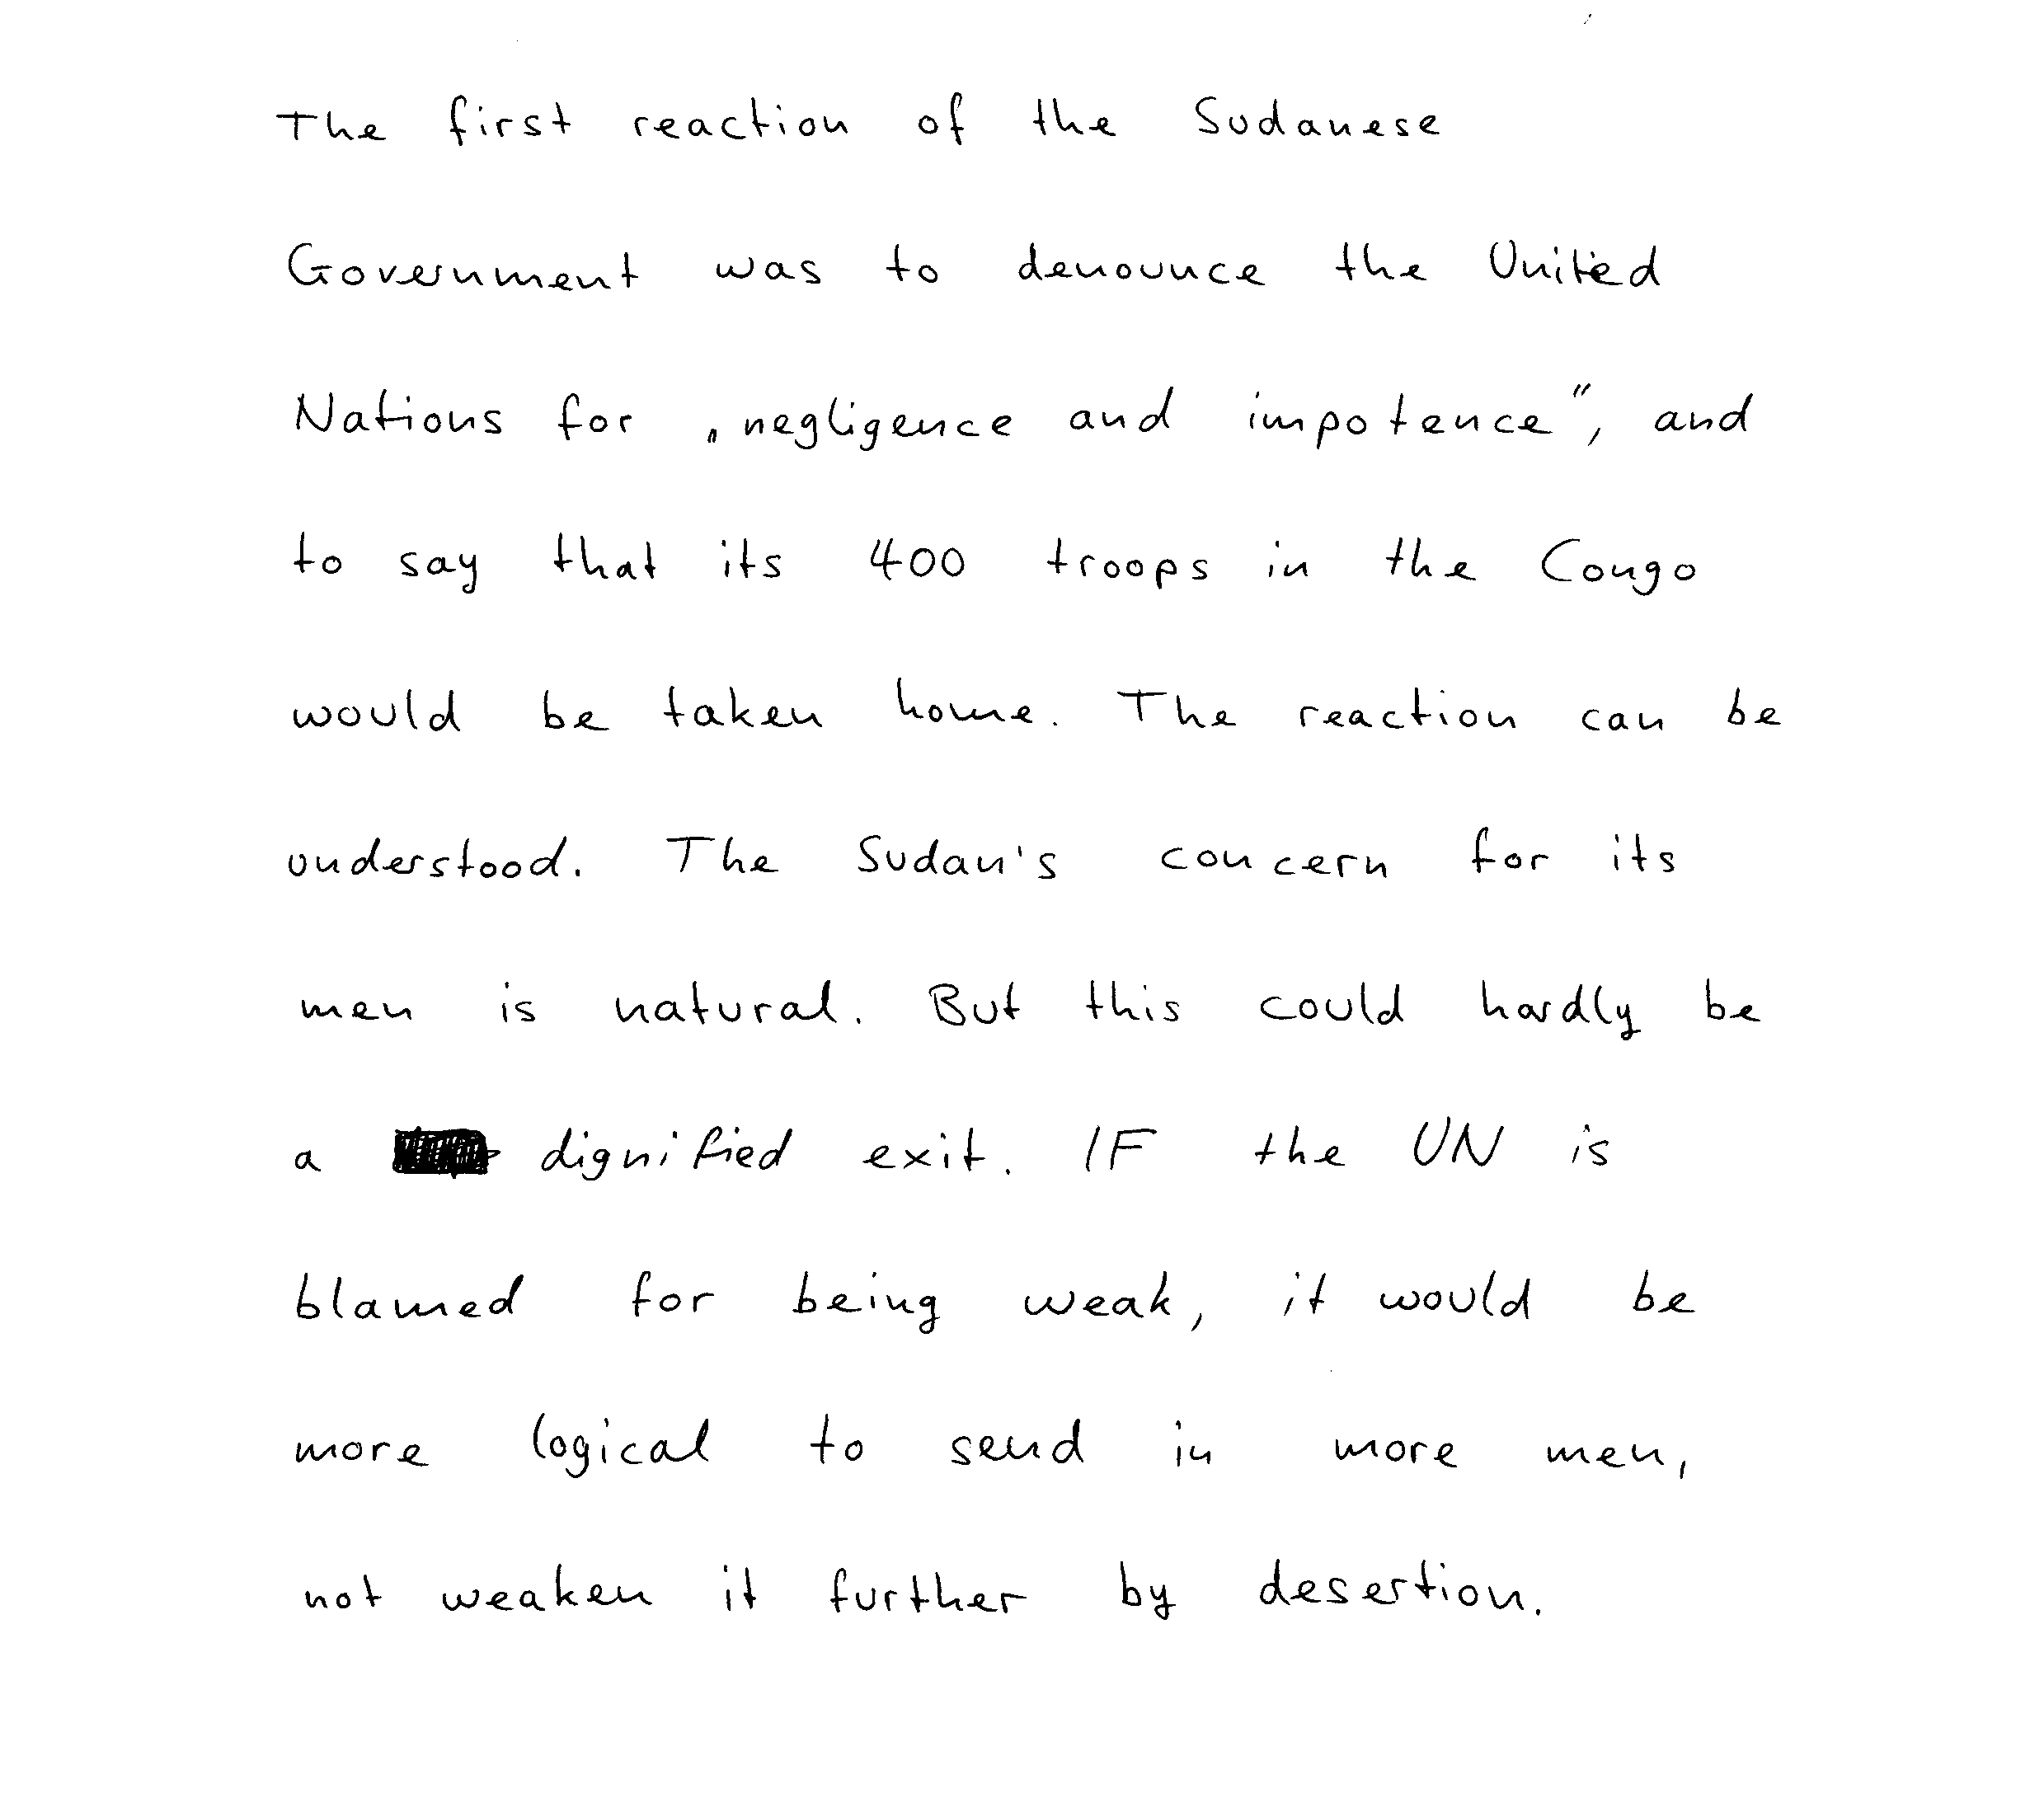 The first reaction of the Sudanese
Government was to denounce the United
Nations for „negligence and impotence", and
to say that its 400 troops in the Congo
would be taken home. The reaction can be
understood. The Sudan's concern for its
men is natural. But this could hardly be
a dignified exit. IF the UN is
blamed for being weak, it would be
more logical to send in more men,
not weaken it further by desertion.